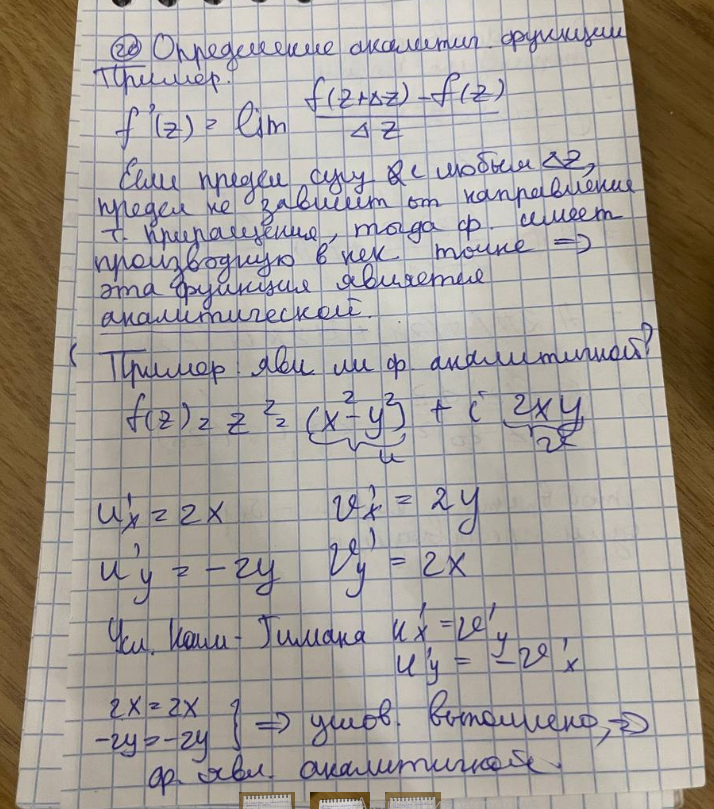 20 Определение аналитич. функции
Пример.
f'(z) = lim f(z+Δz) - f(z) / Δz
Если предел сущ с любым Δz,
предел не зависит от направления
т. приращения, тогда ф. имеет
производную в нек точке =>
эта функция является
аналитической.
Пример: явл ли ф. аналитичной?
f(z) = z² = (x² - y²) + i 2xy
u v
u'x = 2x v'x = 2y
u'y = -2y v'y = 2x
Усл. Коши-Римана u'x = v'y
u'y = -v'x
2x = 2x
-2y = -2y } => услов. выполнено, =>
ф. явл. аналитичной.